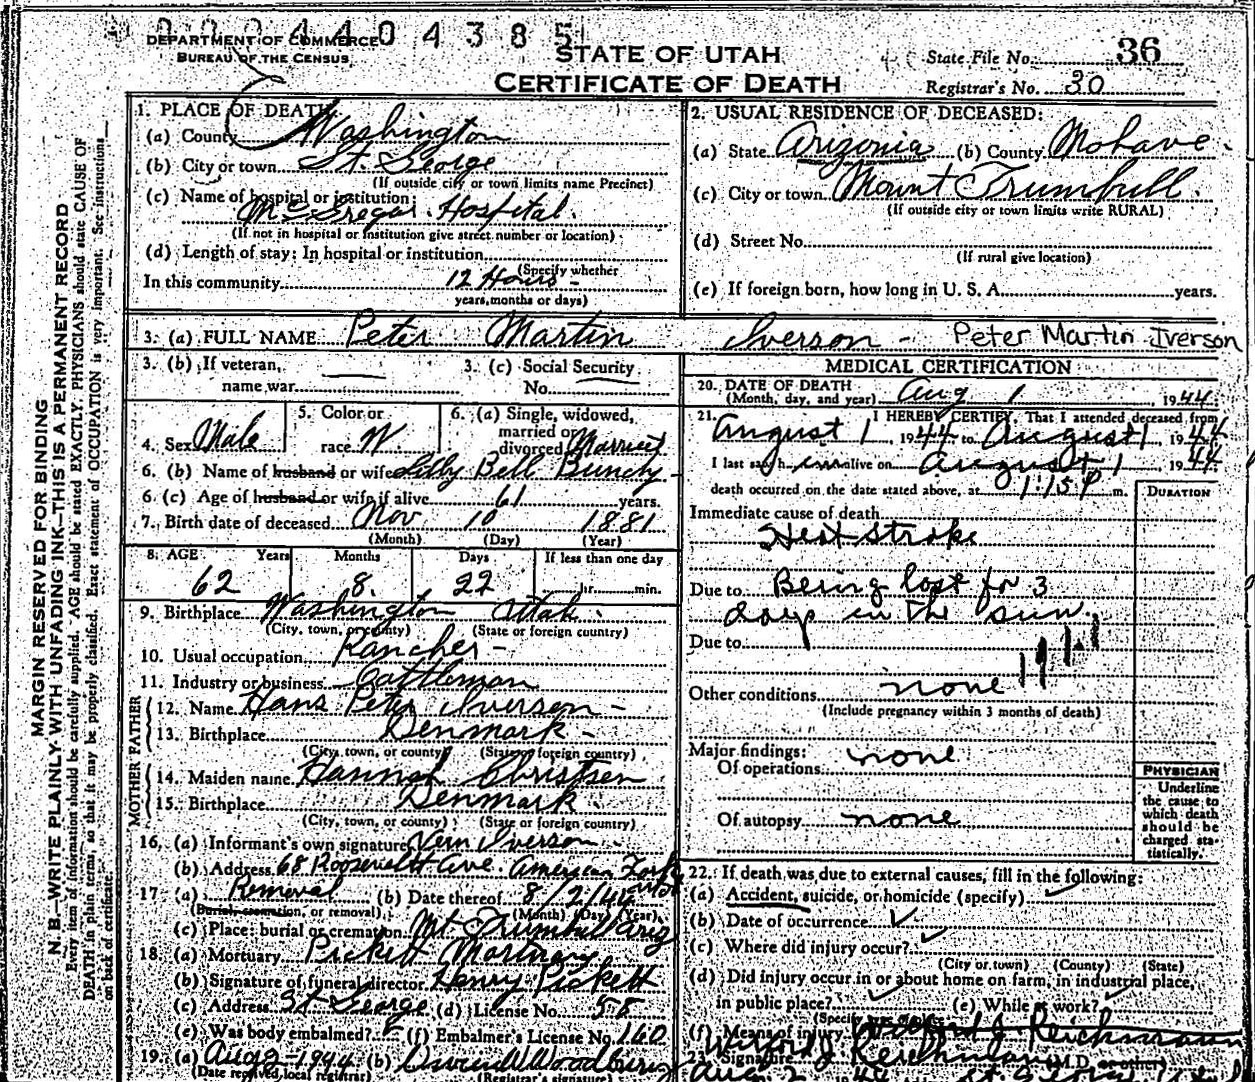 0 4 3 8 5
DEPARTMENT OF COMMERCE
BUREAU OF THE CENSUS
STATE OF UTAH
CERTIFICATE OF DEATH
State File No. 36
Registrar's No. 30
MARGIN RESERVED FOR BINDING
N. B.—WRITE PLAINLY WITH UNFADING INK—THIS IS A PERMANENT RECORD
Every item of information should be carefully supplied. AGE should be stated EXACTLY. PHYSICIANS should state CAUSE OF
DEATH in plain terms, so that it may be properly classified. Exact statement of OCCUPATION is very important. See instructions
on back of certificate.
1. PLACE OF DEATH
(a) County Washington
(b) City or town St. George
(If outside city or town limits name Precinct)
(c) Name of hospital or institution:
McGregor Hospital.
(If not in hospital or institution give street number or location)
(d) Length of stay: In hospital or institution
(Specify whether
In this community 12 Hours -
years, months or days)
2. USUAL RESIDENCE OF DECEASED:
(a) State Arizonia (b) County Mohave.
(c) City or town Mount Trumbull.
(If outside city or town limits write RURAL)
(d) Street No.
(If rural give location)
(e) If foreign born, how long in U. S. A. years.
3. (a) FULL NAME Peter Martin Iverson - Peter Martin Iverson
3. (b) If veteran,
name war
3. (c) Social Security
No.
4. Sex Male
5. Color or
race W
6. (a) Single, widowed,
married or
divorced Married
6. (b) Name of husband or wife Lilly Bell Bundy
6. (c) Age of husband or wife if alive 61 years.
7. Birth date of deceased Nov 10 1881
(Month) (Day) (Year)
8. AGE Years Months Days If less than one day
62 8. 22 hr. min.
9. Birthplace Washington Utah.
(City, town, or county) (State or foreign country)
10. Usual occupation Rancher -
11. Industry or business Cattleman
FATHER
12. Name Hans Peter Iverson -
13. Birthplace Denmark -
(City, town, or county) (State or foreign country)
MOTHER
14. Maiden name Hannah Christsen
15. Birthplace Denmark.
(City, town, or county) (State or foreign country)
16. (a) Informant's own signature Vern Iverson
(b) Address 68 Roosevelt Ave. American Fork
17 (a) Removal (b) Date thereof 8/2/44
(Burial, cremation, or removal) (Month) (Day) (Year)
(c) Place: burial or cremation Mt. Trumbull Ariz
18. (a) Mortuary Pickett Mortuary
(b) Signature of funeral director Henry Pickett
(c) Address St George (d) License No. 58
(e) Was body embalmed? (f) Embalmer's License No. 160
19. (a) Aug 2-1944 (b)
(Date received local registrar) (Registrar's signature)
MEDICAL CERTIFICATION
20. DATE OF DEATH
(Month, day, and year) Aug 1, 1944.
21. I HEREBY CERTIFY, That I attended deceased from
August 1, 1944 to August 1, 1944
I last saw him alive on August 1 1944
death occurred on the date stated above, at 1:15 P m.
DURATION
Immediate cause of death
Heat stroke
Due to Being lost for 3
days in the sun.
Due to
Other conditions none
(Include pregnancy within 3 months of death)
Major findings:
Of operations none
Of autopsy none
PHYSICIAN
Underline
the cause to
which death
should be
charged sta-
tistically.
22. If death was due to external causes, fill in the following:
(a) Accident, suicide, or homicide (specify)
(b) Date of occurrence
(c) Where did injury occur?
(City or town) (County) (State)
(d) Did injury occur in or about home on farm, in industrial place,
in public place? (e) While at work?
(f) Means of injury
23. Signature Wilford J Reichmann M.D.
Aug 2 1944